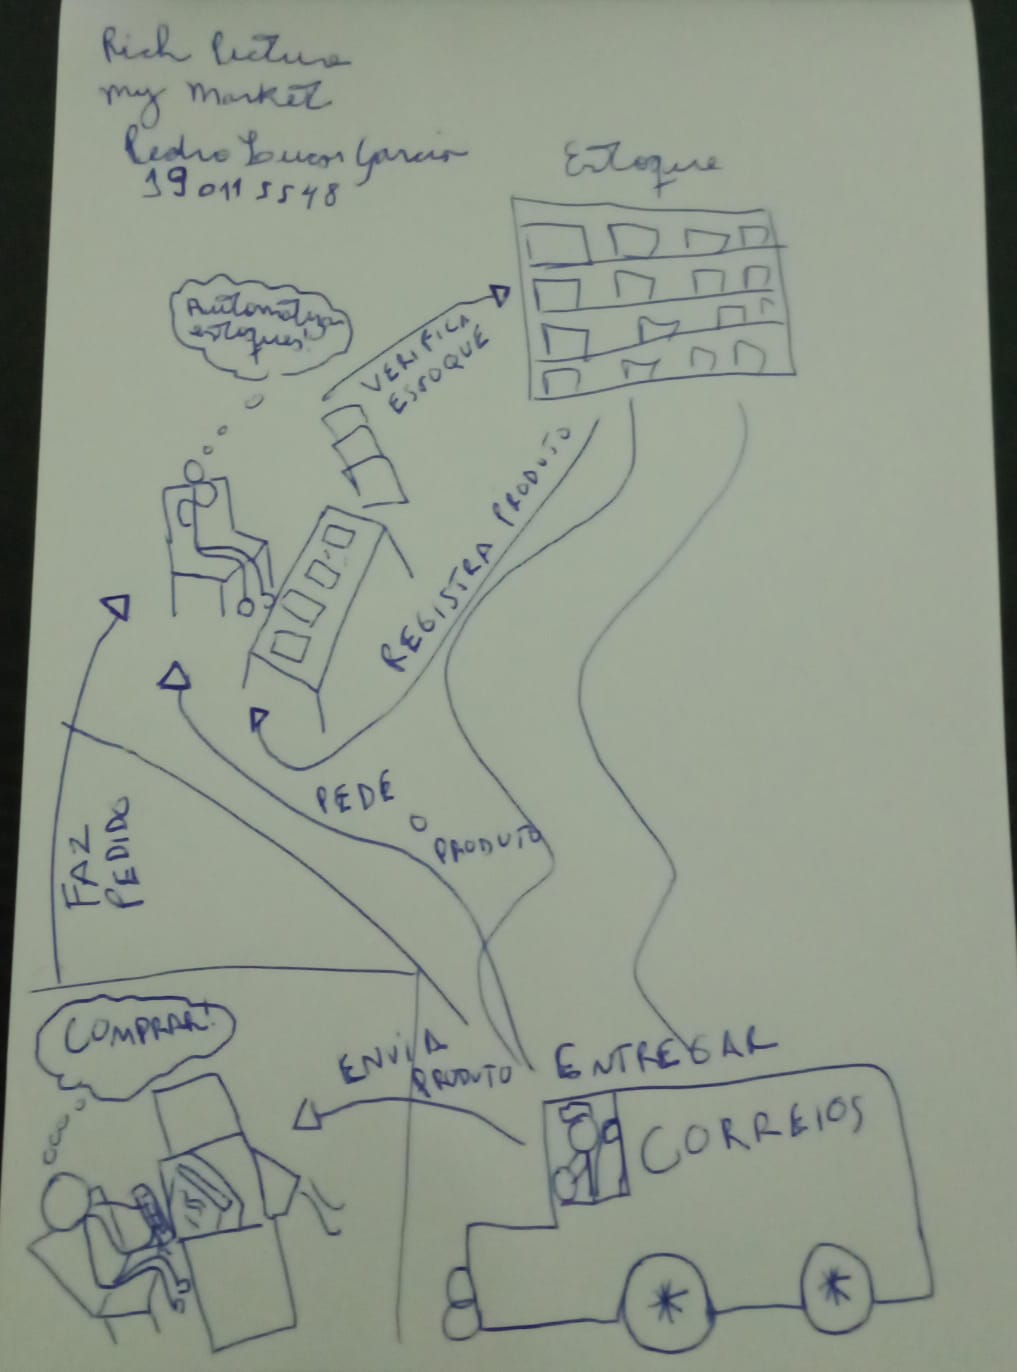 Rich Picture
my Market
Pedro Lucas Garcia
190115548
Estoque
Automatizar
estoques!
VERIFICA
ESTOQUE
REGISTRA PRODUTO
PEDE
O
PRODUTO
FAZ
PEDIDO
COMPRAR!
ENVIA
PRODUTO
ENTREGAR
CORREIOS